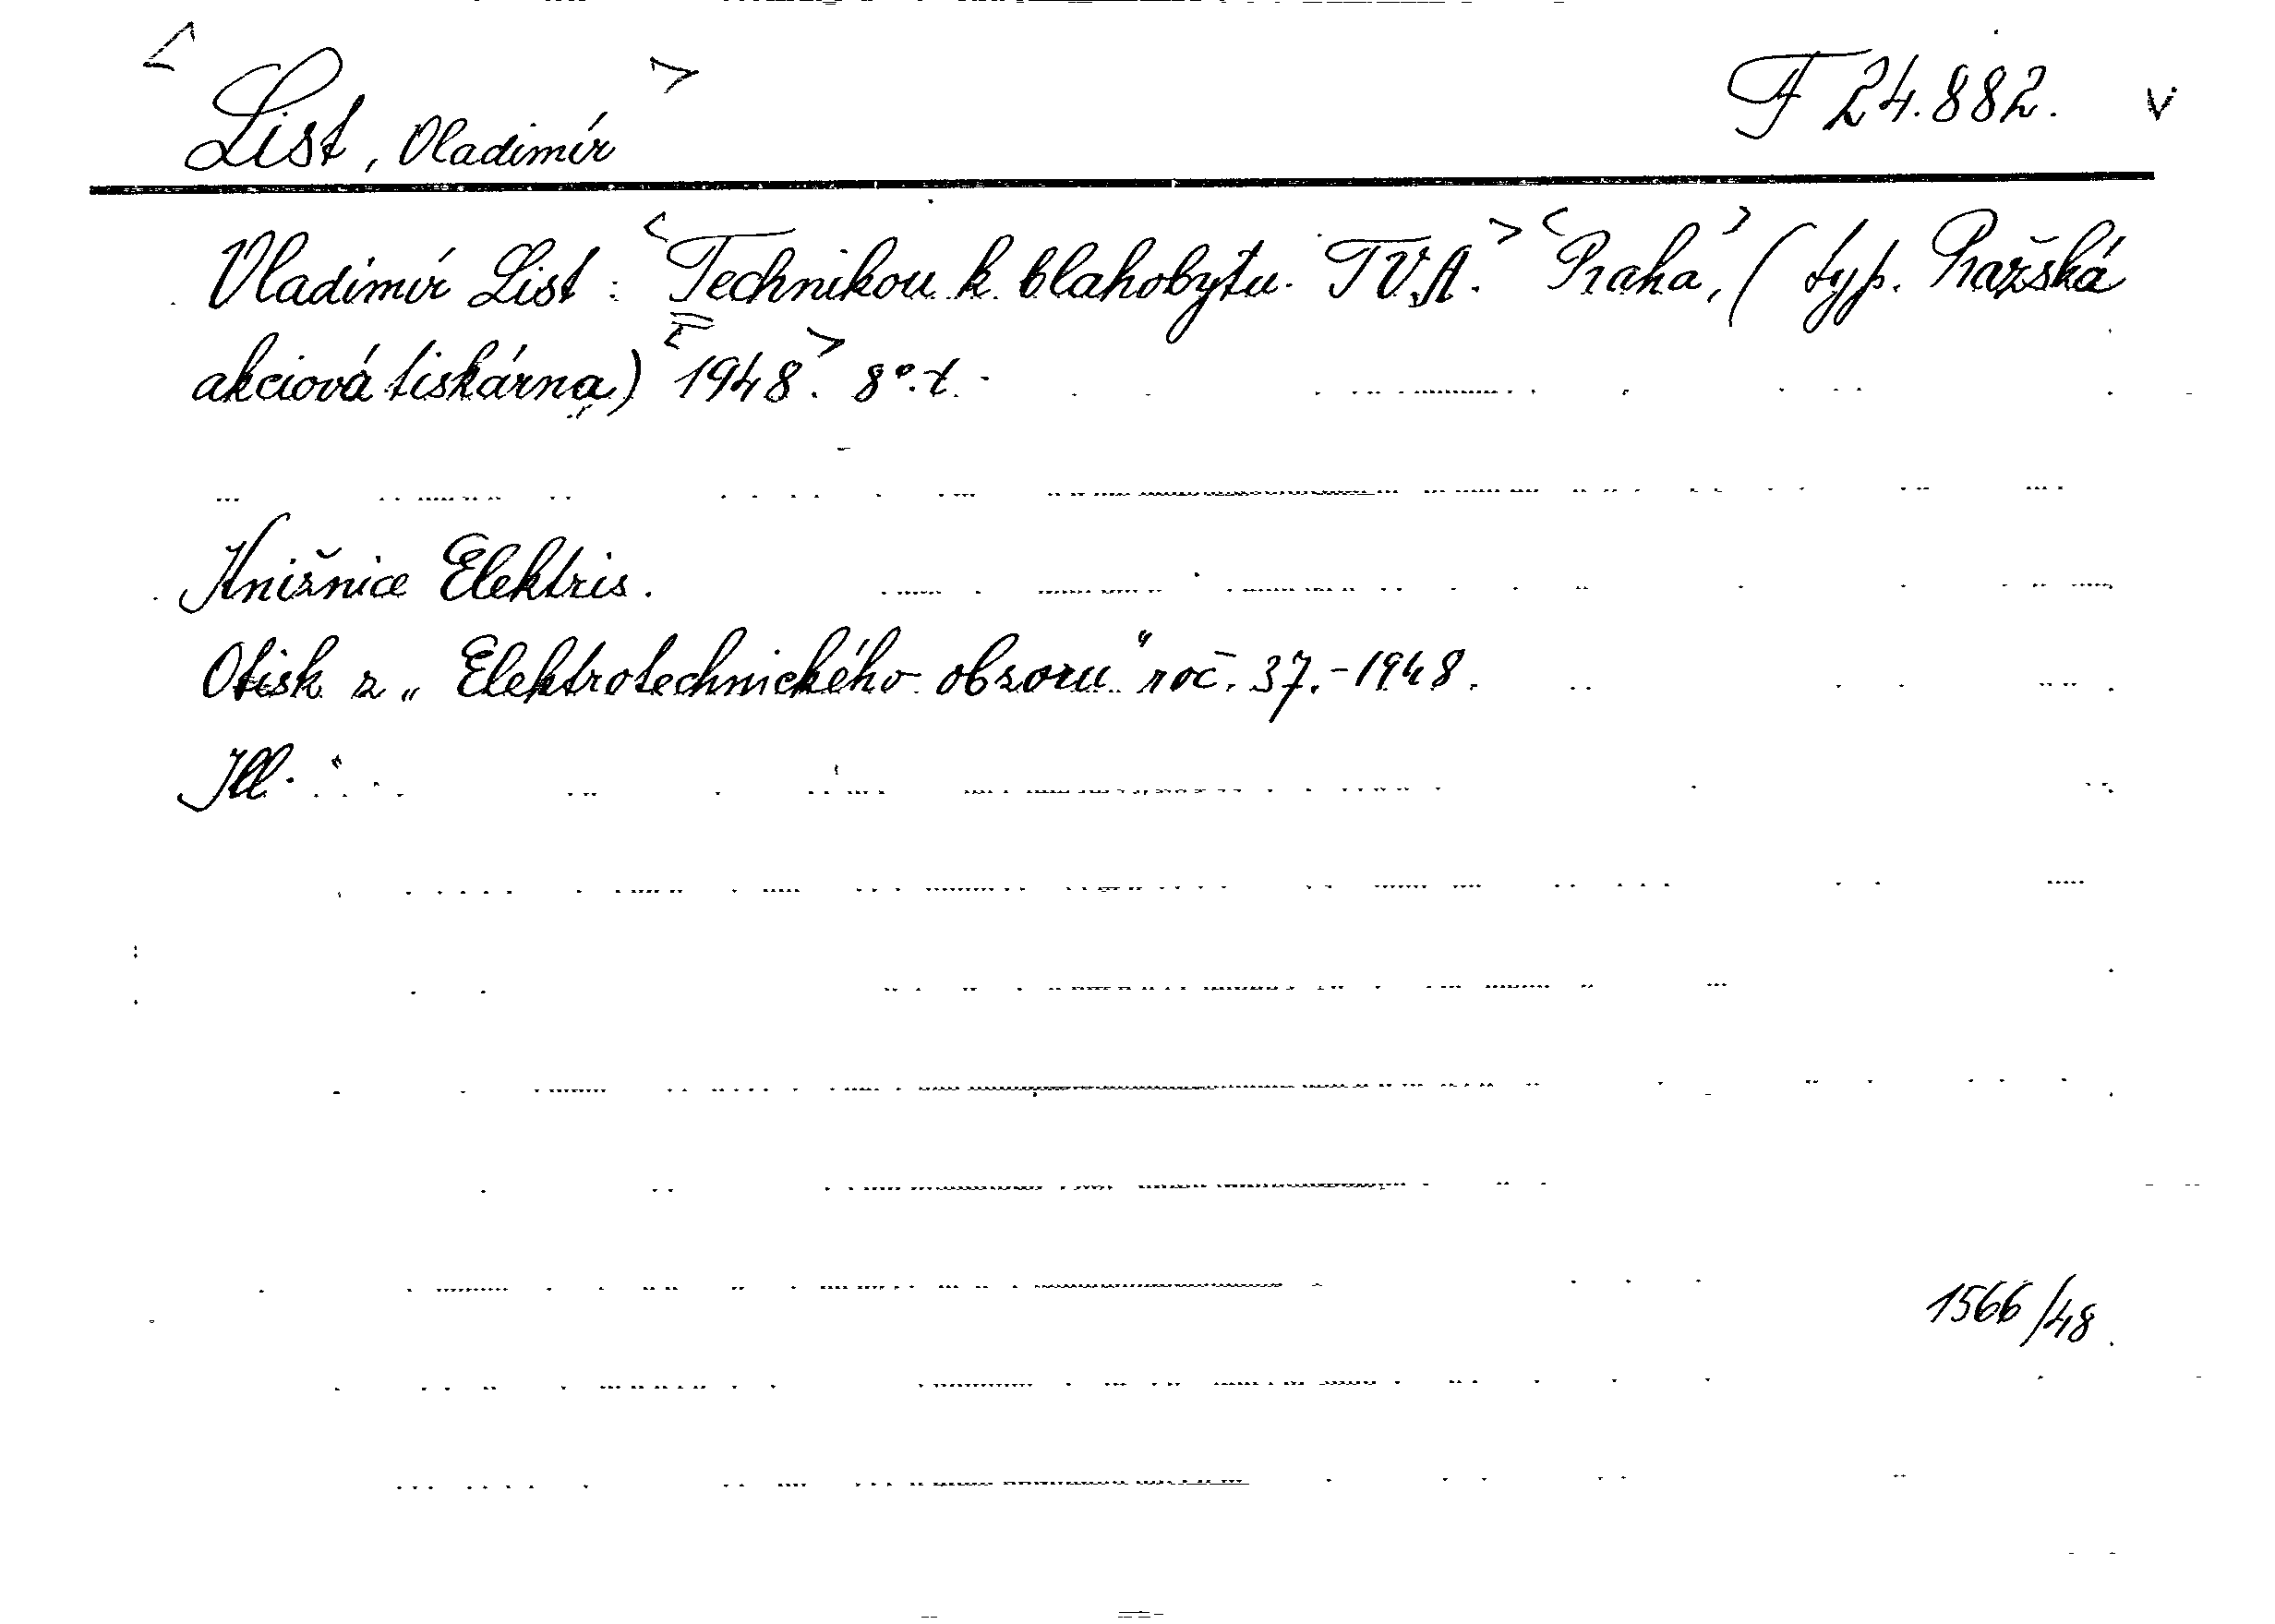 < List, Vladimír > F 24.882. v
Vladimír List: <Technikou k blahobytu. TVA.> <Praha,> (typ. Pražská
akciová tiskárna) <1948.> 8°. t.
Knižnice Elektris.
Otisk z „Elektrotechnického obzoru" roč. 37.-1948.
Ill.
1566/48.